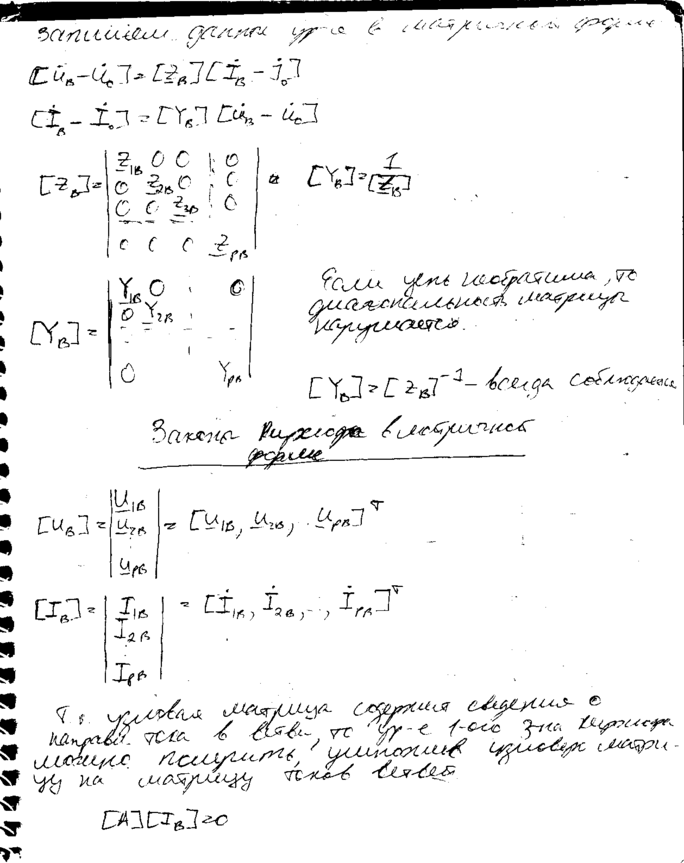 Запишем данные ур-е в матричной форме
[U̇_B - U̇_0] = [Z_B] [İ_B - J̇_0]
[İ_B - İ_0] = [Y_B] [U̇_B - U̇_0]
[Z_B] = | Z_1B 0 0 ¦ 0 |
| 0 Z_2B 0 ¦ 0 |
| 0 0 Z_3B ¦ 0 |
| 0 0 0 Z_PB |
[Y_B] = 1/[Z_B]
[Y_B] = | Y_1B 0 0 |
| 0 Y_2B |
| 0 Y_PB |
Если цепь необратима, то
диагональность матрицы
нарушается.
[Y_B] = [Z_B]^-1 - всегда соблюдается
Законы Кирхгофа в матричной
форме
[U_B] = | U_1B U_2B U_PB | = [U_1B, U_2B, .. U_PB]^T
[I_B] = | I_1B I_2B I_PB | = [İ_1B, İ_2B, .., İ_PB]^T
Т.к. узловая матрица содержит сведения о
направл. тока в ветви, то ур-е 1-ого з-на Кирхгофа
можно получить, умножив узловую матри-
цу на матрицу токов ветвей
[A][I_B]=0